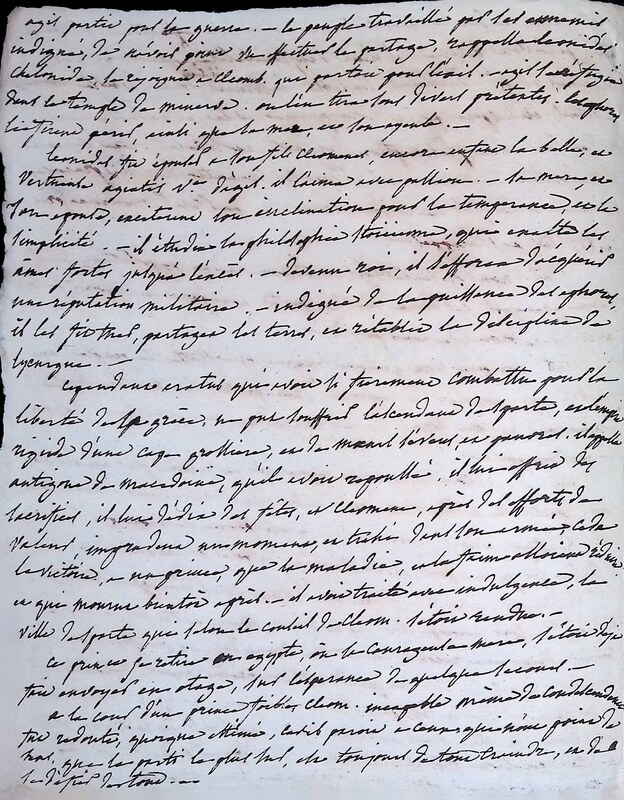 agis partit pour la guerre. — le peuple travaillé par les ennemis
indigné, de n'avoir point vu effectuer le partage, rappella leonidas
chelonide, la epargne a Cleomb. que partoit pour l'exil. — agis se réfugia
dans le temple de minerve. on l'en tira sous divers prétextes. les ephores
le firent périr, ainsi que sa mere, et son ayeule. —
leonidas fit épouser a son fils Cleomenes, encore enfant la belle, et
vertueuse agiatis v.ve d'agis. il l'aima avec passion. — sa mere, et
son epouse, exciterent son inclination pour la temperance, et la
simplicité — il étudia la philosophie stoïcienne, qui exalte les
ames fortes jusqu'a l'excès. — devenu roi, il s'efforca d'acquérir
une reputation militaire. — indigné de la puissance des ephores,
il les fit tuer, partagea les terres, et rétablit la discipline de
lycurgue. —
Cependant aratus qui avoit si fierement combattu pour la
liberté de la grèce, ne put souffrir l'ascendant de sparte, et l'empire
rigide d'une cape grossiere, et de mœurs sévères, et pauvres. il appella
antigone de macedoine, qu'il avoit repoussé, il lui offrit des
sacrifices, il lui dédia des fêtes, et Cleomene, après des efforts de
valeur, imprudent un moment, et trahi dans son armée, céda
la victoire, a un prince, que la maladie, et la faim alloient réduire
et qui mourut bientôt après. — il avoit traité avec indulgence, la
ville de sparte qui selon le conseil de Cleom. s'étoit rendue. —
Ce prince se retira en egypte, ou sa courageuse mere, s'étoit deja
fait envoyer en otage, sur l'espérance de quelque secours. —
a la cour d'un prince foible, Cleom. incapable même de condescendance
fut redouté, quoique estimé,
que le parti le plus sur, est toujours de tout craindre, et de
se défier de tout. —